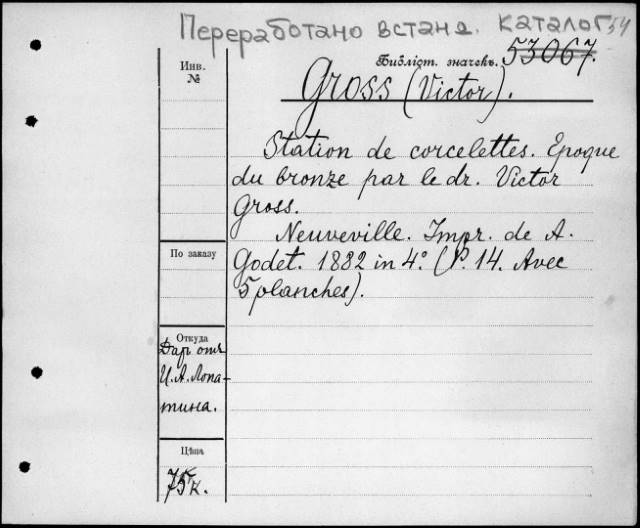 Переработано в станд. каталог 54
Инв.
№
Библіот. значекъ. 53067.
Gross (Victor).
Station de corcelettes. Epoque
du bronze par le dr. Victor
Gross.
Neuveville. Impr. de A.
Godet. 1882 in 4° (P. 14. Avec
5 planches).
По заказу
Откуда
Дар отъ
И. А. Лопа-
тина.
Цѣна
75 к.